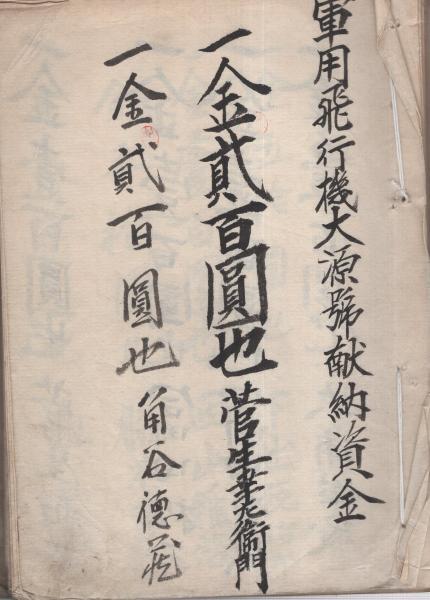 軍用飛行機大源號献納資金
一金貳百圓也 菅生幸左衛門
一金貳百圓也 角谷德藏